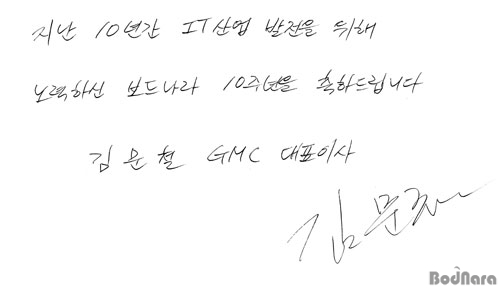 지난 10년간 IT산업 발전을 위해
노력하신 보드나라 10주년을 축하드립니다
김문철 GMC 대표이사
김문철
BodNara